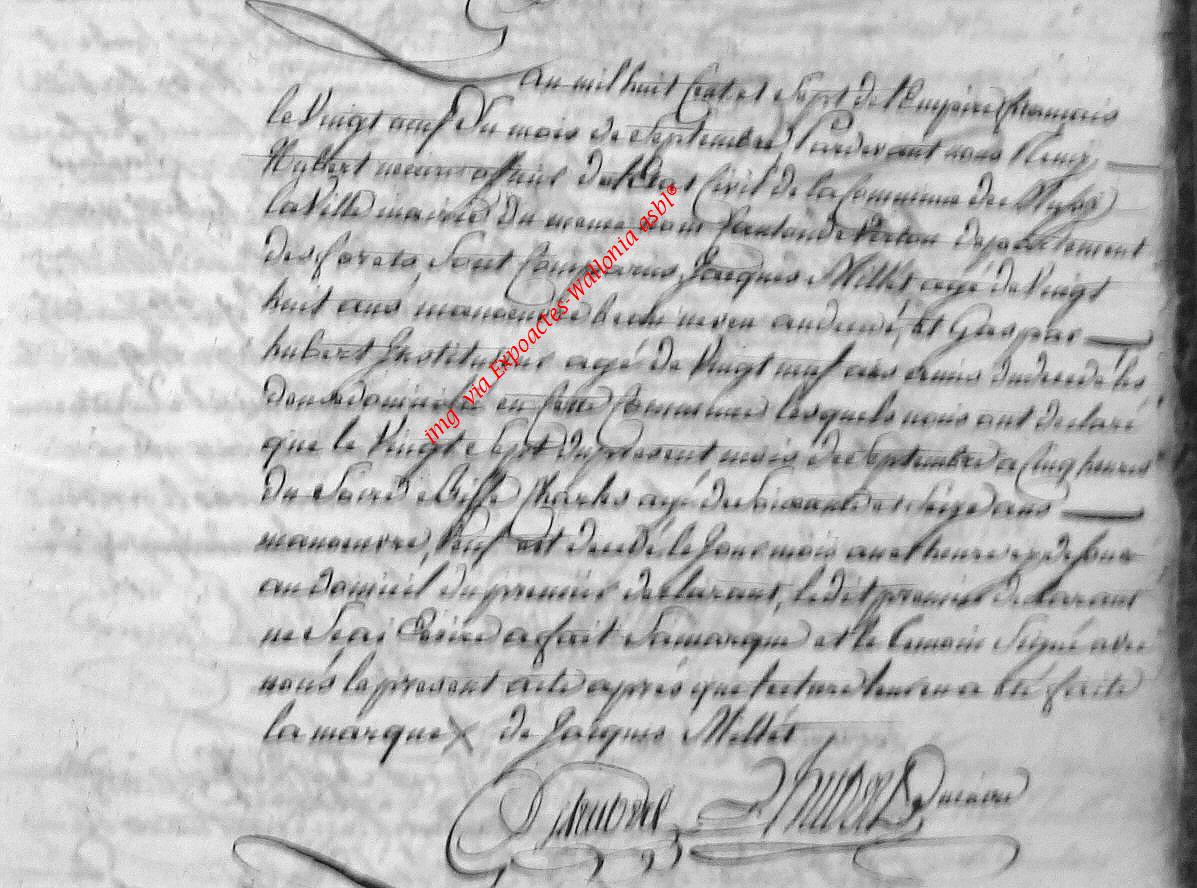 an mil huit Cent et Sept de l'Empire francais
le Vingt neuf Du mois de Septembre, Pardevant nous Remy
Hubert officier De l'Etat Civil de la Commune de
la Ville mairie du meme nom Canton de Virton Departement
des forets Sont Comparus, Jacques Millet agé de Vingt
huit ans manoeuvre et Gaspar
hubert Instituteur agé de Vingt neuf ans
domicilié en Cette Commune lesquels nous ont declaré
que le Vingt Sept du present mois de Septembre a Cinq heures
du Soire Charles agé de Soixante et Seize ans
manoeuvre, Veuf est decedé le Jour mois an et heure
au domicil du premier declarant, le dit premier declarant
ne Scai Ecrire a fait Sa marque et le temoin Signé avec
nous le present acte après que lecture leur en a été faite
la marque X de Jacques Millet
Hubert Hubert
img via Expoactes-Wallonia asbl®